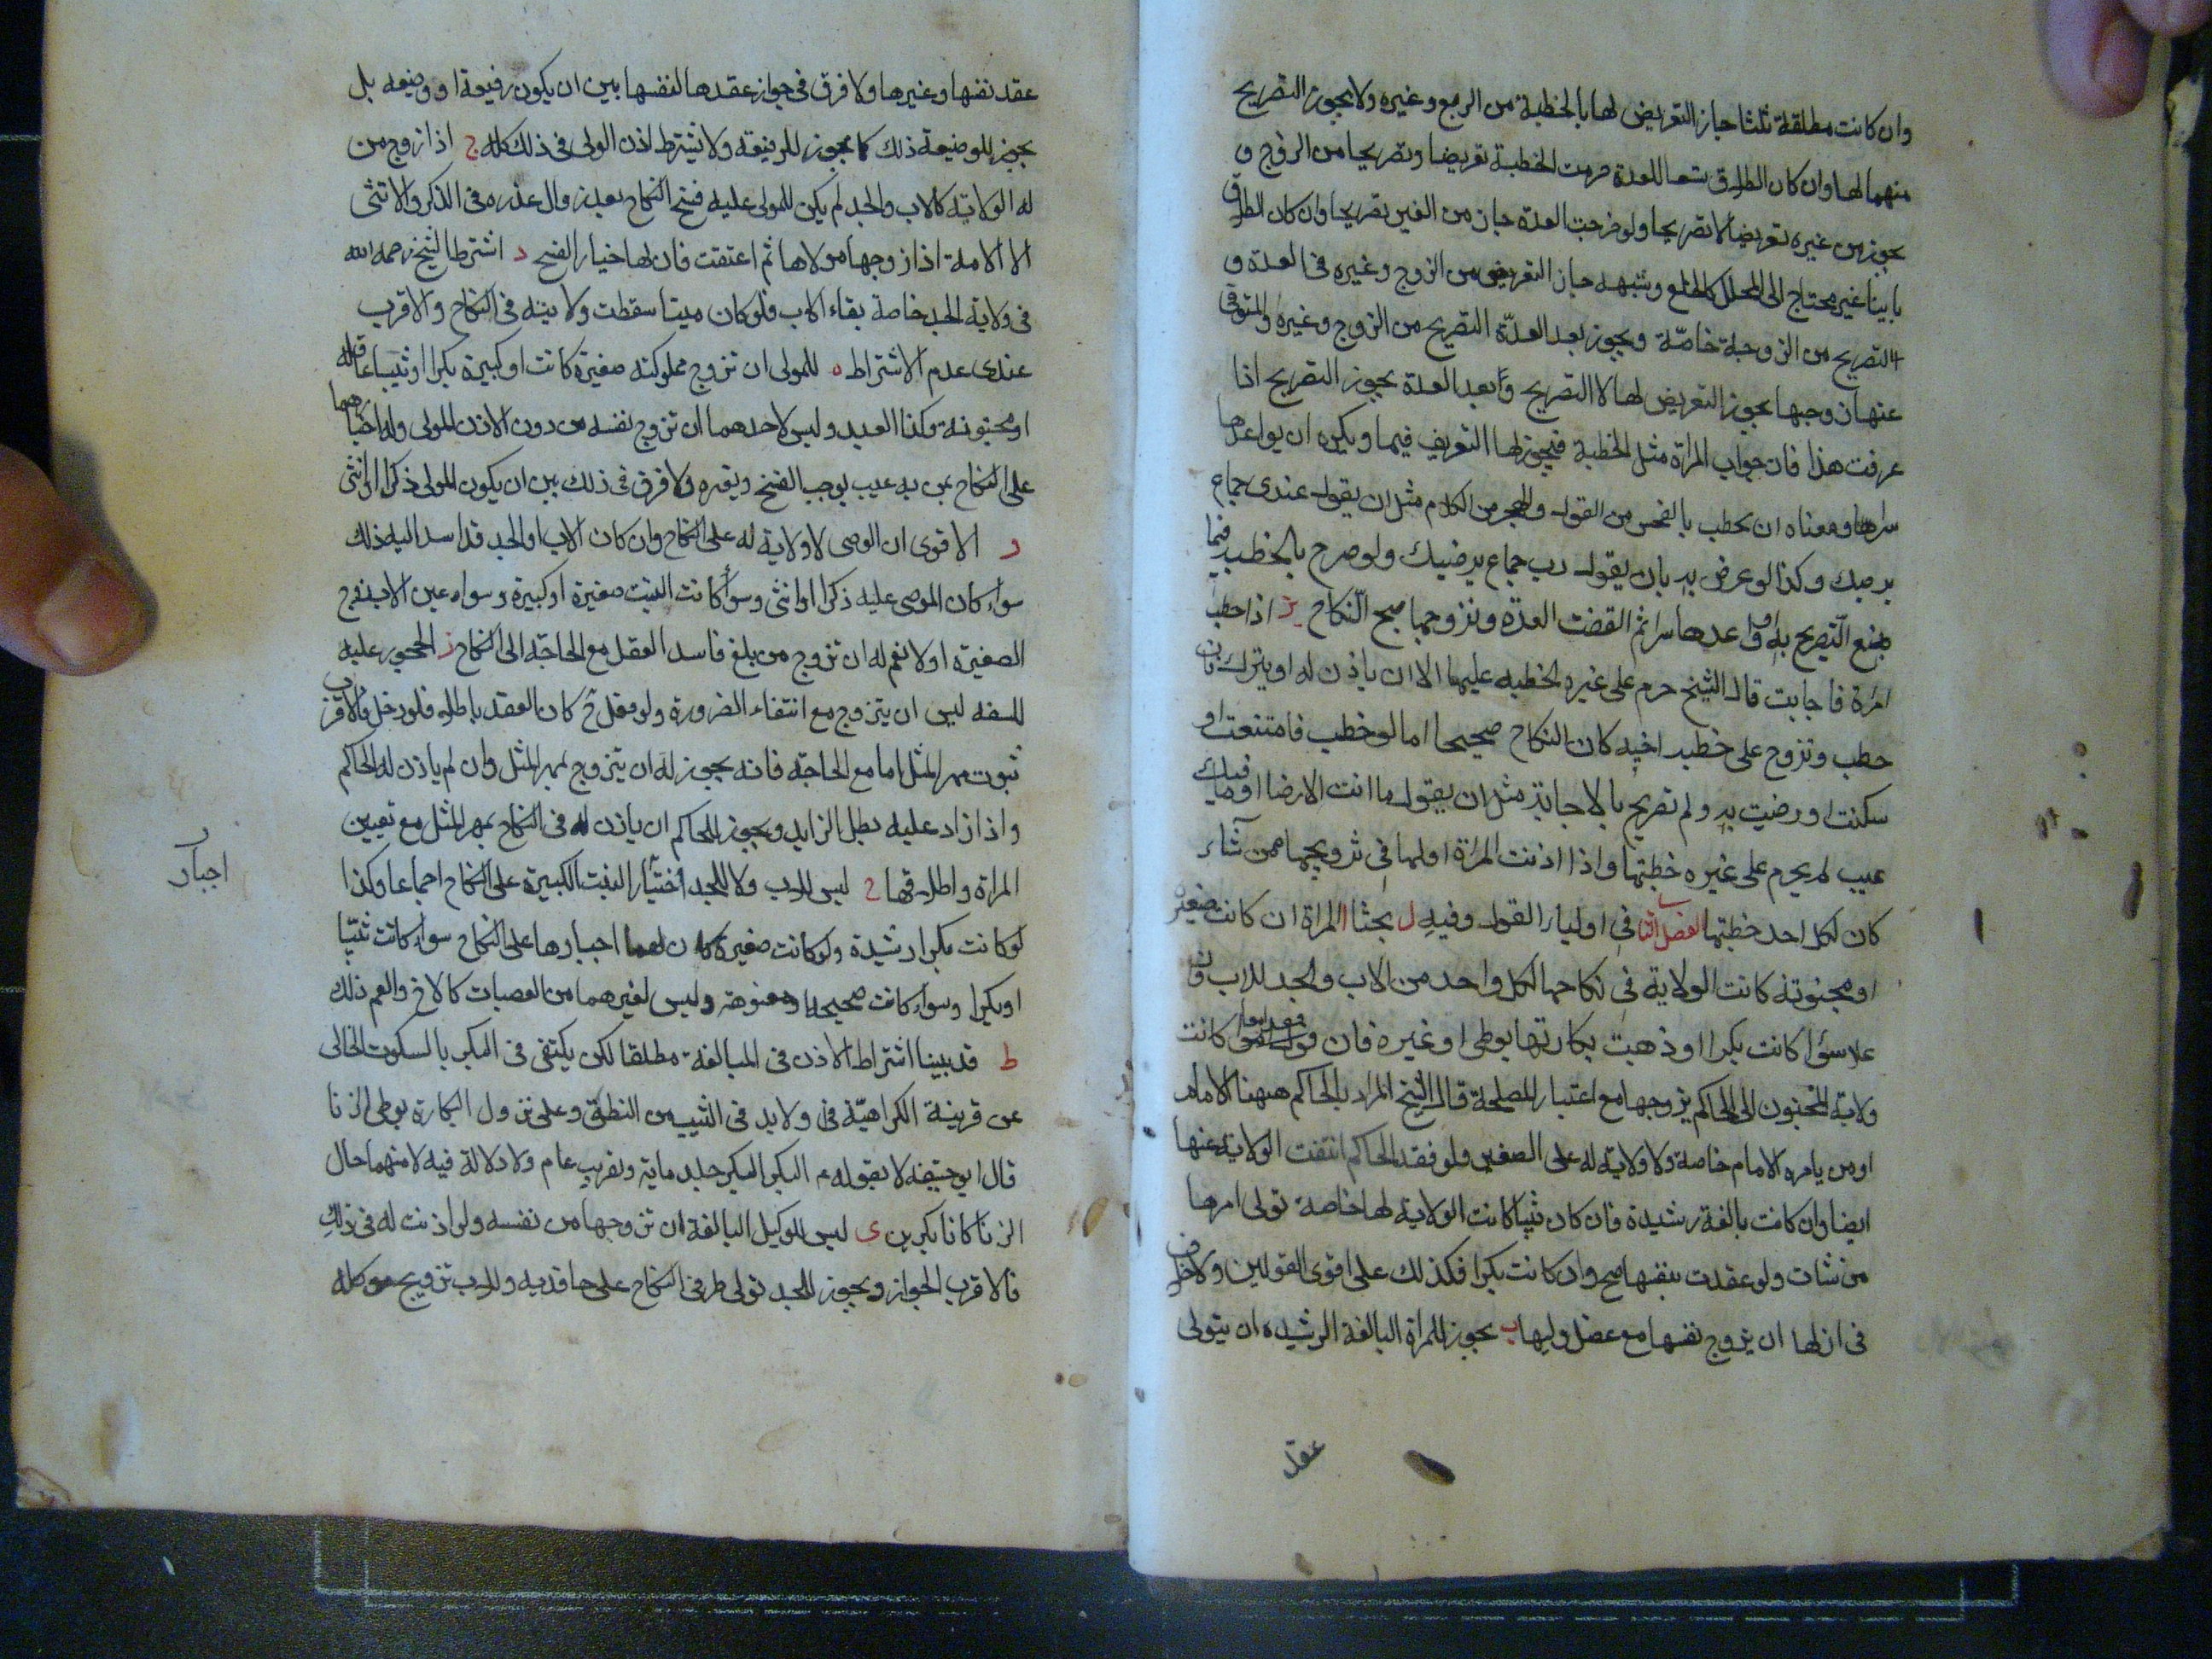 وان كانت مطلقة ثلثا جاز التعريض لها بالخطبة من الزوج وغيره ولا يجوز التصريح
منهما لها وان كان الطلاق تسعا للعدة حرمت الخطبة تعريضا وتصريحا من الزوج و
يجوز من غيره تعريضا لا تصريحا ولو خرجت العدة جاز من الغير تصريحا وان كان الطلاق
باينا غير محتاج الى المحلل كالخلع وشبهه جاز التعريض من الزوج وغيره في العدة و
التصريح من الزوج خاصّة ويجوز بعد العدّة التصريح من الزوج وغيره والمتوفى
عنها زوجها يجوز التعريض لها لا التصريح وبعد العدة يجوز التصريح اذا
عرفت هذا فان جواب المراة مثل الخطبة فيجوز لها التعريض فيما ويكره ان يواعدها
سرا ومعناه ان يخطب بالفحش من القول والهجر من الكلام مثل ان يقول عندى جماع
يرضيك وكذا لو عرض به بان يقول رب جماع يرضيك ولو صرح بالخطبه فيما
يمنع التصريح به او واعدها سرا ثم انقضت العدّة وتزوجها صح النّكاح ز اذا خطب
امراة فاجابت قال الشيخ حرم على غيره الخطبه عليها الا ان ياذن له او يترك فان
خطب وتزوج على خطبه اخيه كان النكاح صحيحا اما لو خطب فامتنعت او
سكنت او رضيت به ولم تصريح بالاجابة مثل ان يقول ما انت الا رضا او ما فيك
عيب لم يحرم على غيره خطبتها واذا اذنت المراة لوليها في تزويجها ممن تشاء
كان لكل احد خطبتها الفصل الثانى في اولياء القول وفيه ل بحثا ا المراة ان كانت صغيرة
او مجنونة كانت الولاية في نكاحها لكل واحد من الاب والجد للاب وان
علا سواء كانت بكرا او ذهبت بكارتها بوطى او غيره فان فقدا كانت
ولاية المجنون الى الحاكم يزوجها مع اعتبار المصلحة قال الشيخ المراد بالحاكم ههنا الامام
او من يامره الامام خاصة ولا ولاية له على الصغير ولو فقد الحاكم انتفت الولاية عنها
ايضا وان كانت بالغة رشيدة فان كان ثيبا كانت الولاية لها خاصة تولى امرها
من شات ولو عقدت بنفسها صح وان كانت بكرا فكذلك على اقوى القولين ولا خلاف
فى ان لها ان يزوج نفسها مع عضل وليها ب يجوز للمراة البالغة الرشيده ان يتولى
عقد
عقد نفسها وغيرها ولا فرق في جواز عقدها لنفسها بين ان يكون رفيعة او وضيعه بل
يجوز للوضيعة ذلك كما يجوز للرفيعة ولا يشترط اذن الولى فى ذلك كله ج اذا زوج من
له الولاية كالاب والجد لم يكن للمولى عليه فسخ النكاح بعد زوال عذره فى الذكر والانثى
الا الامة اذا زوجها مولاها ثم اعتقت فان لها خيار الفسخ د اشترط الشيخ رحمه الله
فى ولاية الجد خاصة بقاء الاب فلو كان ميتا سقطت ولايته فى النكاح والاقرب
عندى عدم الاشتراط ه للمولى ان تزوج مملوكته صغيرة كانت او كبيرة بكرا او ثيبا عاقله
او مجنونة وكذا العبد وليس لاحدهما ان تزوج نفسه من دون الاذن المولى وله اجبارهما
على النكاح بمن به عيب يوجب الفسخ وبغيره ولا فرق فى ذلك بين ان يكون المولى ذكرا او انثى
و الاقوى ان الوصى لا ولاية له على النكاح وان كان الاب او الجد قد اسند اليه ذلك
سواء كان الموصى عليه ذكرا او انثى وسواء كانت البنت صغيرة او كبيرة وسواء عين الاب زوج
الصغيرة او لا نعم له ان تزوج من بلغ فاسد العقل مع الحاجة الى النكاح ز المحجور عليه
للسفه ليس ان يتزوج مع انتفاء الضرورة ولو فعل ح كان العقد باطلا فلو دخل فالاقرب
ثبوت مهر المثل اما مع الحاجة فانه يجوز له ان يتزوج بمهر المثل وان لم ياذن له الحاكم
واذا زاد عليه بطل الزايد ويجوز للحاكم ان ياذن له فى النكاح بمهر المثل مع تعيين
المراة واطلاقها ح ليس للاب ولا للجد اختيار البنت الكبيرة على النكاح اجماعا وكذا
اجبار
لو كانت بكرا رشيدة ولو كانت صغيرة كان لهما اجبارها على النكاح سواء كانت ثيبا
او بكرا وسواء كانت صحيحة او معنوهة وليس لغيرهما من العصبات كالاخ والعم ذلك
ط قد بينا اشتراط الاذن فى البالغة مطلقا لكن يكتفى فى البكر بالسكوت الخالى
عن قرينة الكراهيّة فى ولا بد فى الثيب من النطق وعلى نزول البكارة بوطى الزنا
قال ابو حنيفه لا بقوله ع البكر البكر جلد ماية وتغريب عام ولا دلالة فيه لانهما حال
الزنا كانا بكرين ى ليس للوكيل البالغة ان تزوجها من نفسه ولو اذنت له فى ذلك
فالاقرب الجواز ويجوز للجد تولى طرفى النكاح على حافديه وللاب تزويج موكله